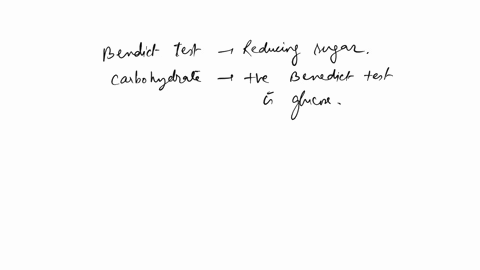 Bendict test → Reducing sugar.
Carbohydrate → +ve Benedict test
is glucose.